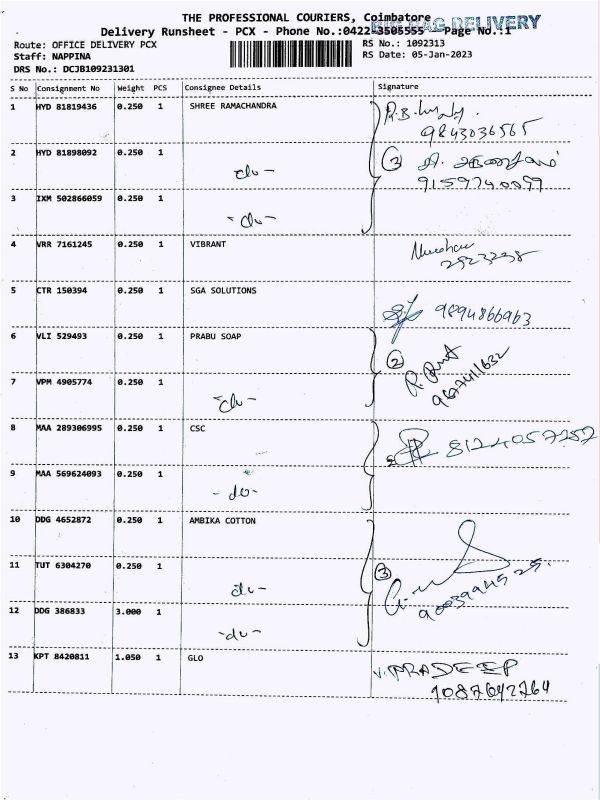 THE PROFESSIONAL COURIERS, Coimbatore
BIG BAG DELIVERY
Delivery Runsheet - PCX - Phone No.:0422-3505555 Page No.:1
Route: OFFICE DELIVERY PCX
RS No.: 1092313
Staff: NAPPINA
RS Date: 05-Jan-2023
DRS No.: DCJB109231301
S No Consignment No Weight PCS Consignee Details Signature
1 HYD 81819436 0.250 1 SHREE RAMACHANDRA
9843036565
2 HYD 81898092 0.250 1 -do- 3
9159740099
3 IXM 502866059 0.250 1 -do-
4 VRR 7161245 0.250 1 VIBRANT
2923298
5 CTR 150394 0.250 1 SGA SOLUTIONS
9894866963
6 VLI 529493 0.250 1 PRABU SOAP 2
7 VPM 4905774 0.250 1 -do-
9687411632
8 MAA 289306995 0.250 1 CSC 8124057252
9 MAA 569624093 0.250 1 -do-
10 DDG 4652872 0.250 1 AMBIKA COTTON
11 TUT 6304270 0.250 1 -do- 3
9003994525
12 DDG 386833 3.000 1 -do-
13 KPT 8420811 1.050 1 GLO V. PRADEEP
9087642764